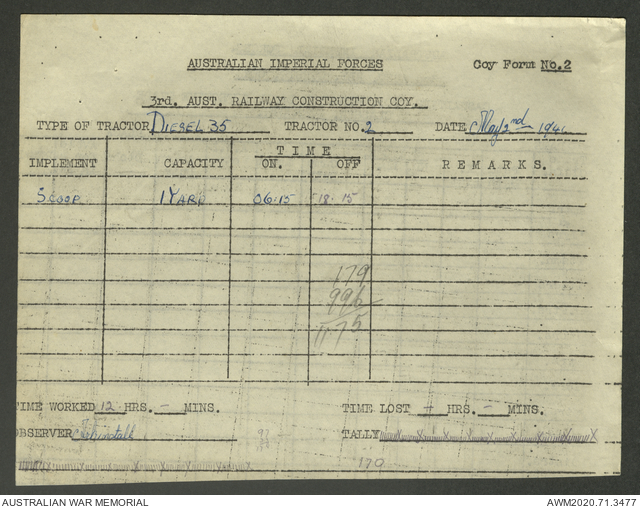 AUSTRALIAN IMPERIAL FORCES Coy Form No.2
3rd. AUST. RAILWAY CONSTRUCTION COY.
TYPE OF TRACTOR DIESEL 35 TRACTOR NO. 2 DATE May 2nd 194
T I M E
IMPLEMENT CAPACITY ON. OFF R E M A R K S.
SCOOP 1 YARD 06.15 18.15
179
996
1175
TIME WORKED 12 HRS. - MINS. TIME LOST - HRS. - MINS.
OBSERVER TALLY
179
AUSTRALIAN WAR MEMORIAL AWM2020.71.3477